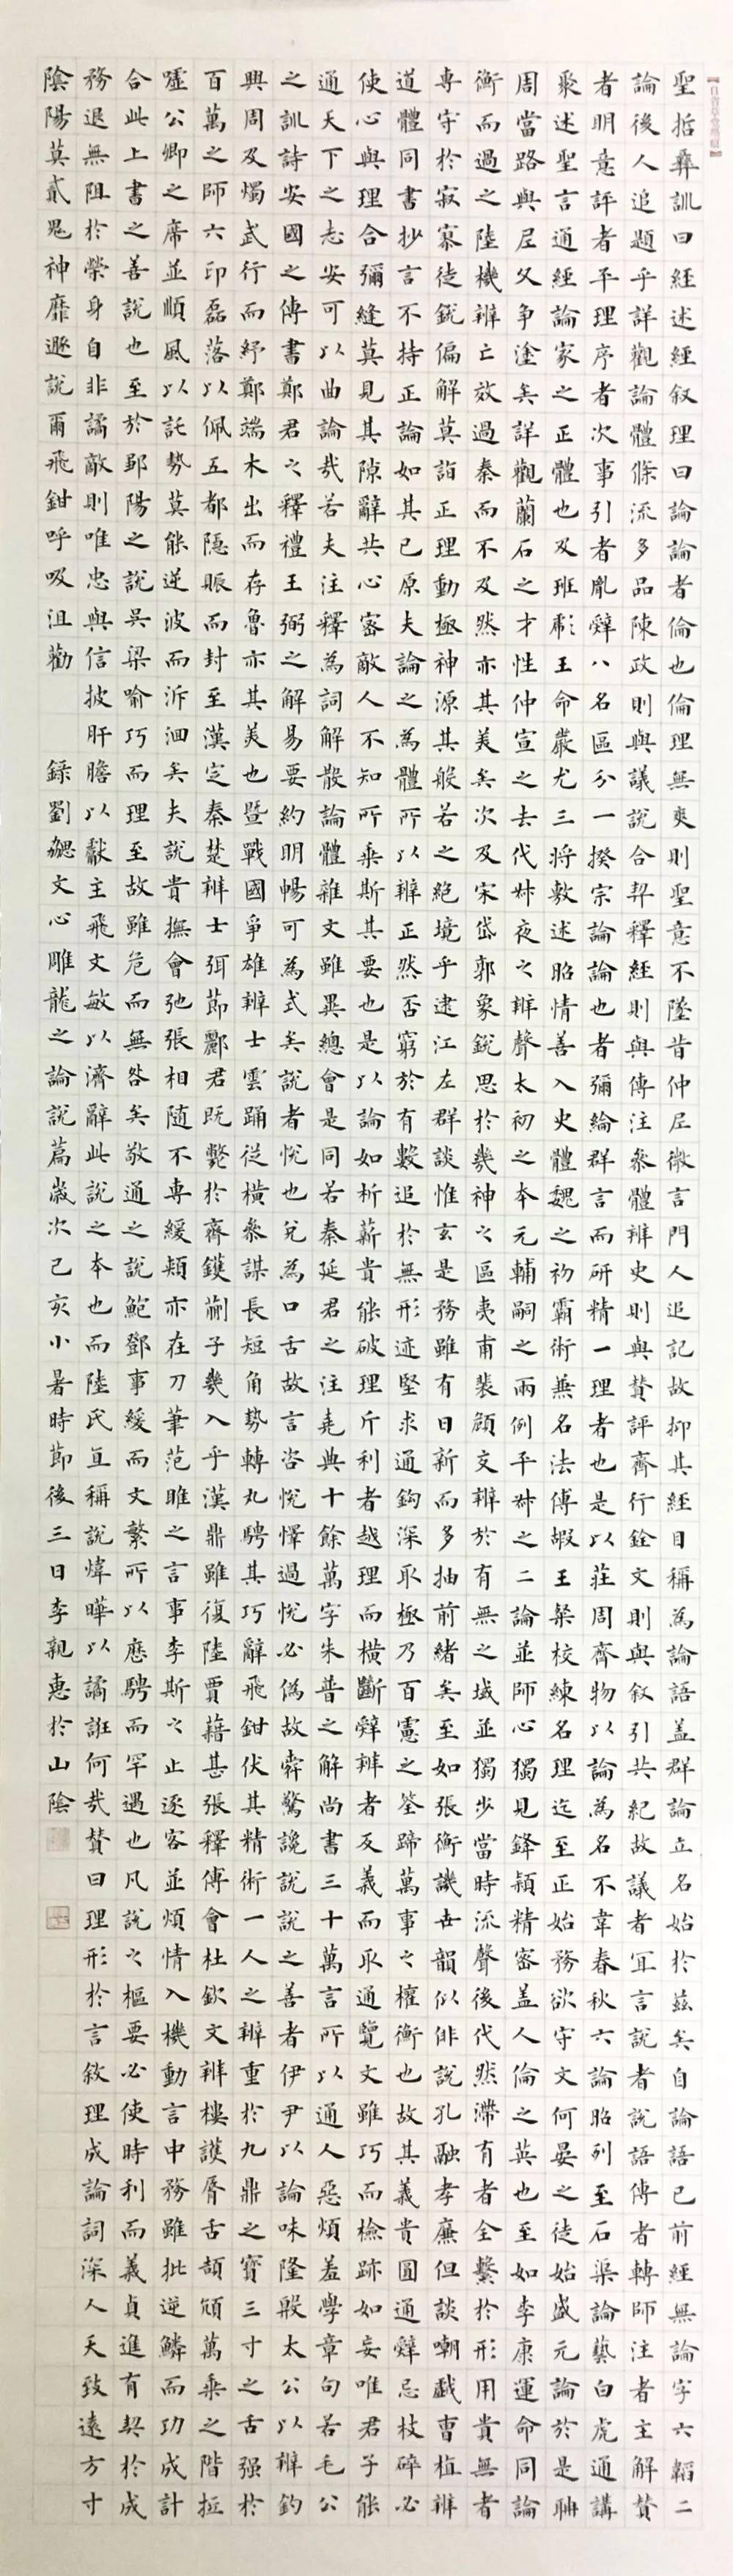 聖哲彝訓曰經述經叙理曰論論者倫也倫理無爽則聖意不墜昔仲尼微言門人追記故抑其經目稱為論語蓋群論立名始於茲矣自論語已前經無論字六韜二
論後人追題乎詳觀論體條流多品陳政則與議說合契釋經則與傳注參體辨史則與贊評齊行銓文則與叙引共紀故議者宜言說者說語傳者轉師注者主解贊
者明意評者平理序者次事引者胤辭八名區分一揆宗論論也者彌綸群言而研精一理者也是以莊周齊物以論為名不韋春秋六論昭列至石渠論藝白虎通講
聚述聖言通經論家之正體也及班彪王命嚴尤三將敷述昭情善入史體魏之初霸術兼名法傅嘏王粲校練名理迄至正始務欲守文何晏之徒始盛元論於是聃
周當路與尼父爭塗矣詳觀蘭石之才性仲宣之去代叔夜之辨聲太初之本元輔嗣之兩例平叔之二論並師心獨見鋒穎精密蓋人倫之英也至如李康運命同論
衡而過之陸機辨亡效過秦而不及然亦其美矣次及宋岱郭象銳思於幾神之區夷甫裴頠交辨於有無之域並獨步當時流聲後代然滯有者全繫於形用貴無者
專守於寂寥徒銳偏解莫詣正理動極神源其般若之絕境乎逮江左群談惟玄是務雖有日新而多抽前緒矣至如張衡譏世韻似俳說孔融孝廉但談嘲戲曹植辨
道體同書抄言不持正論如其已原夫論之為體所以辨正然否窮於有數追於無形迹堅求通鉤深取極乃百慮之筌蹄萬事之權衡也故其義貴圓通辭忌枝碎必
使心與理合彌縫莫見其隙辭共心密敵人不知所乘斯其要也是以論如析薪貴能破理斤利者越理而橫斷辭辨者反義而取通覽文雖巧而檢跡如妄唯君子能
通天下之志安可以曲論哉若夫注釋為詞解散論體雜文雖異總會是同若秦延君之注堯典十餘萬字朱普之解尚書三十萬言所以通人惡煩羞學章句若毛公
之訓詩安國之傳書鄭君之釋禮王弼之解易要約明暢可為式矣說者悅也兌為口舌故言咨悅懌過悅必偽故舜驚讒說說之善者伊尹以論味隆殷太公以辨釣
興周及燭武行而紓鄭端木出而存魯亦其美也暨戰國爭雄辨士雲踊從橫參謀長短角勢轉丸騁其巧辭飛鉗伏其精術一人之辨重於九鼎之寶三寸之舌强於
百萬之師六印磊落以佩五都隱賑而封至漢定秦楚辨士弭節酈君既斃於齊鑊蒯子幾入乎漢鼎雖復陸賈藉甚張釋傅會杜欽文辨樓護脣舌頡頏萬乘之階抵
噓公卿之席並順風以託勢莫能逆波而泝洄矣夫說貴撫會弛張相随不專緩頰亦在刀筆范雎之言事李斯之止逐客並煩情入機動言中務雖批逆鱗而功成計
合此上書之善說也至於鄒陽之說吳梁喻巧而理至故雖危而無咎矣敬通之說鮑鄧事緩而文繁所以歷騁而罕遇也凡說之樞要必使時利而義貞進有契於成
務退無阻於榮身自非譎敵則唯忠與信披肝膽以獻主飛文敏以濟辭此說之本也而陸氏直稱說煒曄以譎誑何哉贊曰理形於言敘理成論詞深人天致遠方寸
陰陽莫貳鬼神靡遯說爾飛鉗呼吸沮勸 錄劉勰文心雕龍之論說篇歲次己亥小暑時節後三日李親惠於山陰